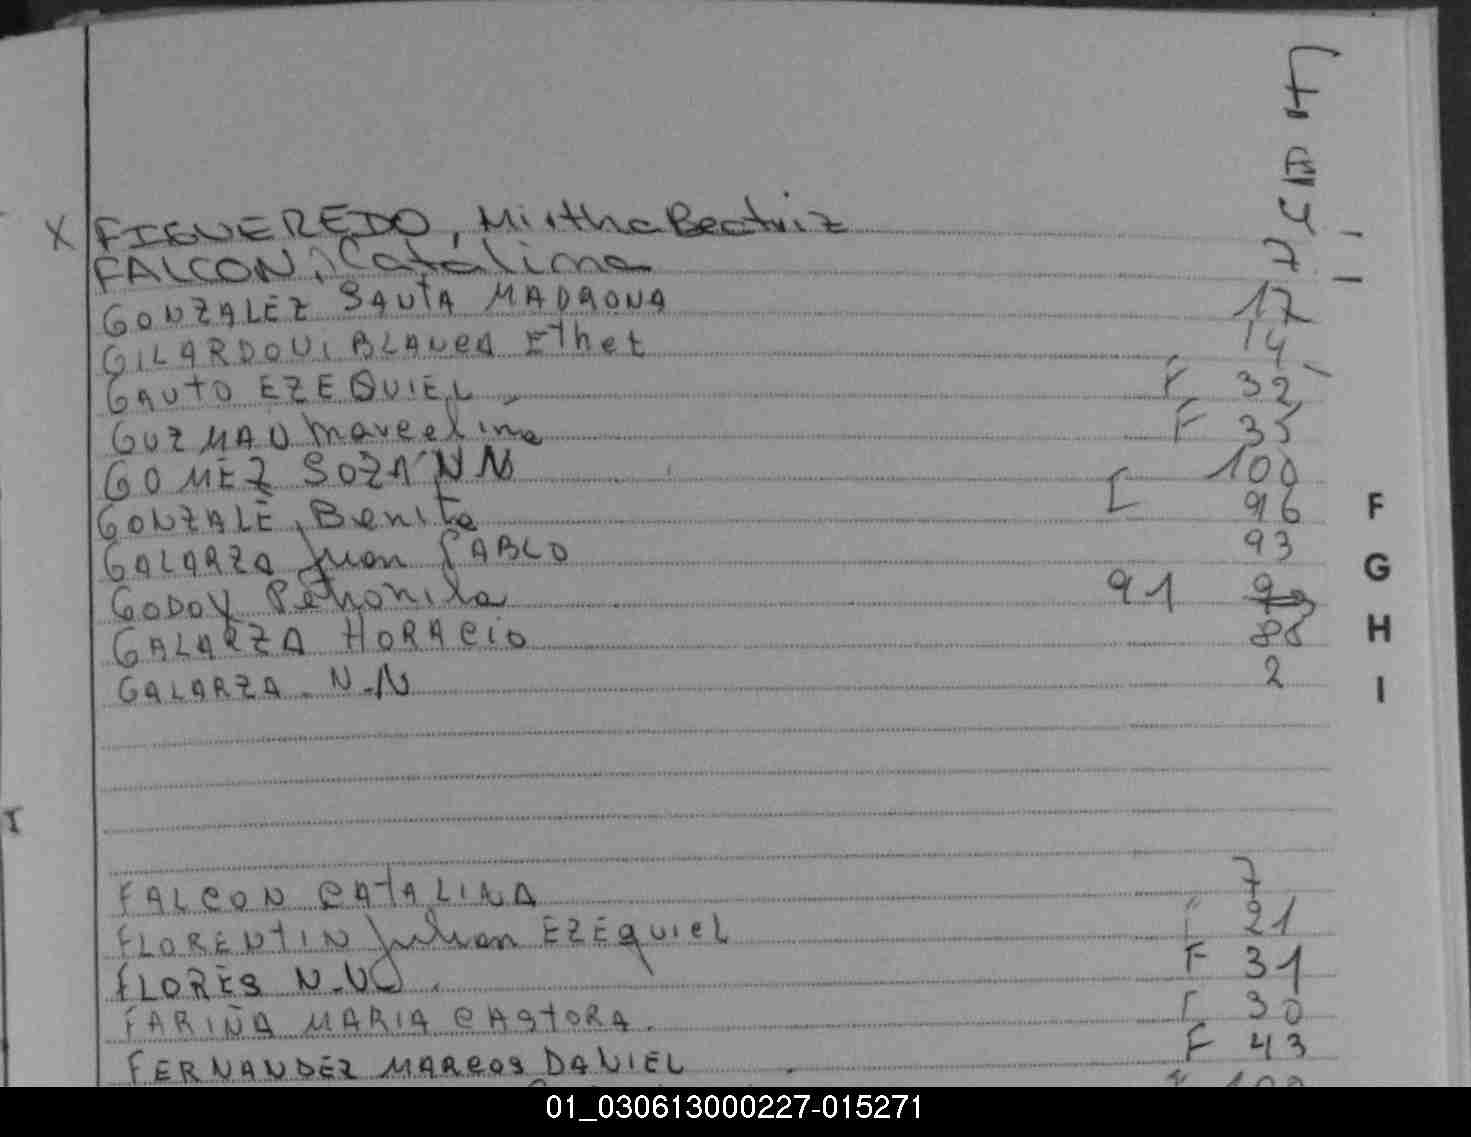 F
X FIGUEREDO, Mirtha Beatriz 4
FALCON, Catalina 7
GONZALEZ SANTA MADRONA 17
GILARDONI BLANCA EtheL 14
GAUTO EZEQUIEL F 32
GUZMAN Marcelina F 35
GOMEZ SOZA NN 100
GONZALE, Benita 96
GALARZA Juan PABLO 93
GODOY Petronila 91
GALARZA HORACIO 88
GALARZA N.N 2
FALCON CATALINA 7
FLORENTIN Julian EZEQUIEL F 21
FLORES N.N F 31
FARIÑA MARIA CASTORA. F 30
FERNANDEZ MARCOS DANIEL F 43
F
G
H
I
01_030613000227-015271